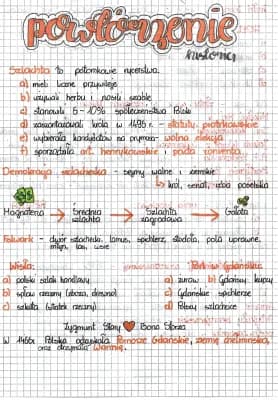 powtórzenie
historia
Szlachta to potomkowie rycerstwa.
a) mieli liczne przywileje
b) używali herbu i nosili szable
c) stanowili 8 - 10% społeczeństwa Polski
d) zaszantażowali króla w 1495 r. - statuty piotrkowskie
e) wybierała kandydatów na prymasa - wolna elekcja
f) sporządzała art. henrykowskie i pacta conventa.
Demokracja szlachecka - sejmy walne i ziemskie
↳ król, senat, izba poselska
Magnateria → Średnia szlachta → Szlachta zagrodowa → Gołota
Folwark - dwór szlachecki, lamus, spichlerz, stodoła, pola uprawne,
młyn, las, wieś
Wisła: Port w Gdańsku:
a) polski szlak handlowy a) żuraw b) Gdańscy kupcy
b) spław rzeczny (zboża, drewna) c) Gdańskie spichlerze
c) szkuta (statek rzeczny) d) Polscy szlachcice
Zygmunt Stary ❤ Bona Sforza
W 1466r. Polska odzyskała Pomorze Gdańskie, ziemię chełmińską,
oraz otrzymała Warmię.